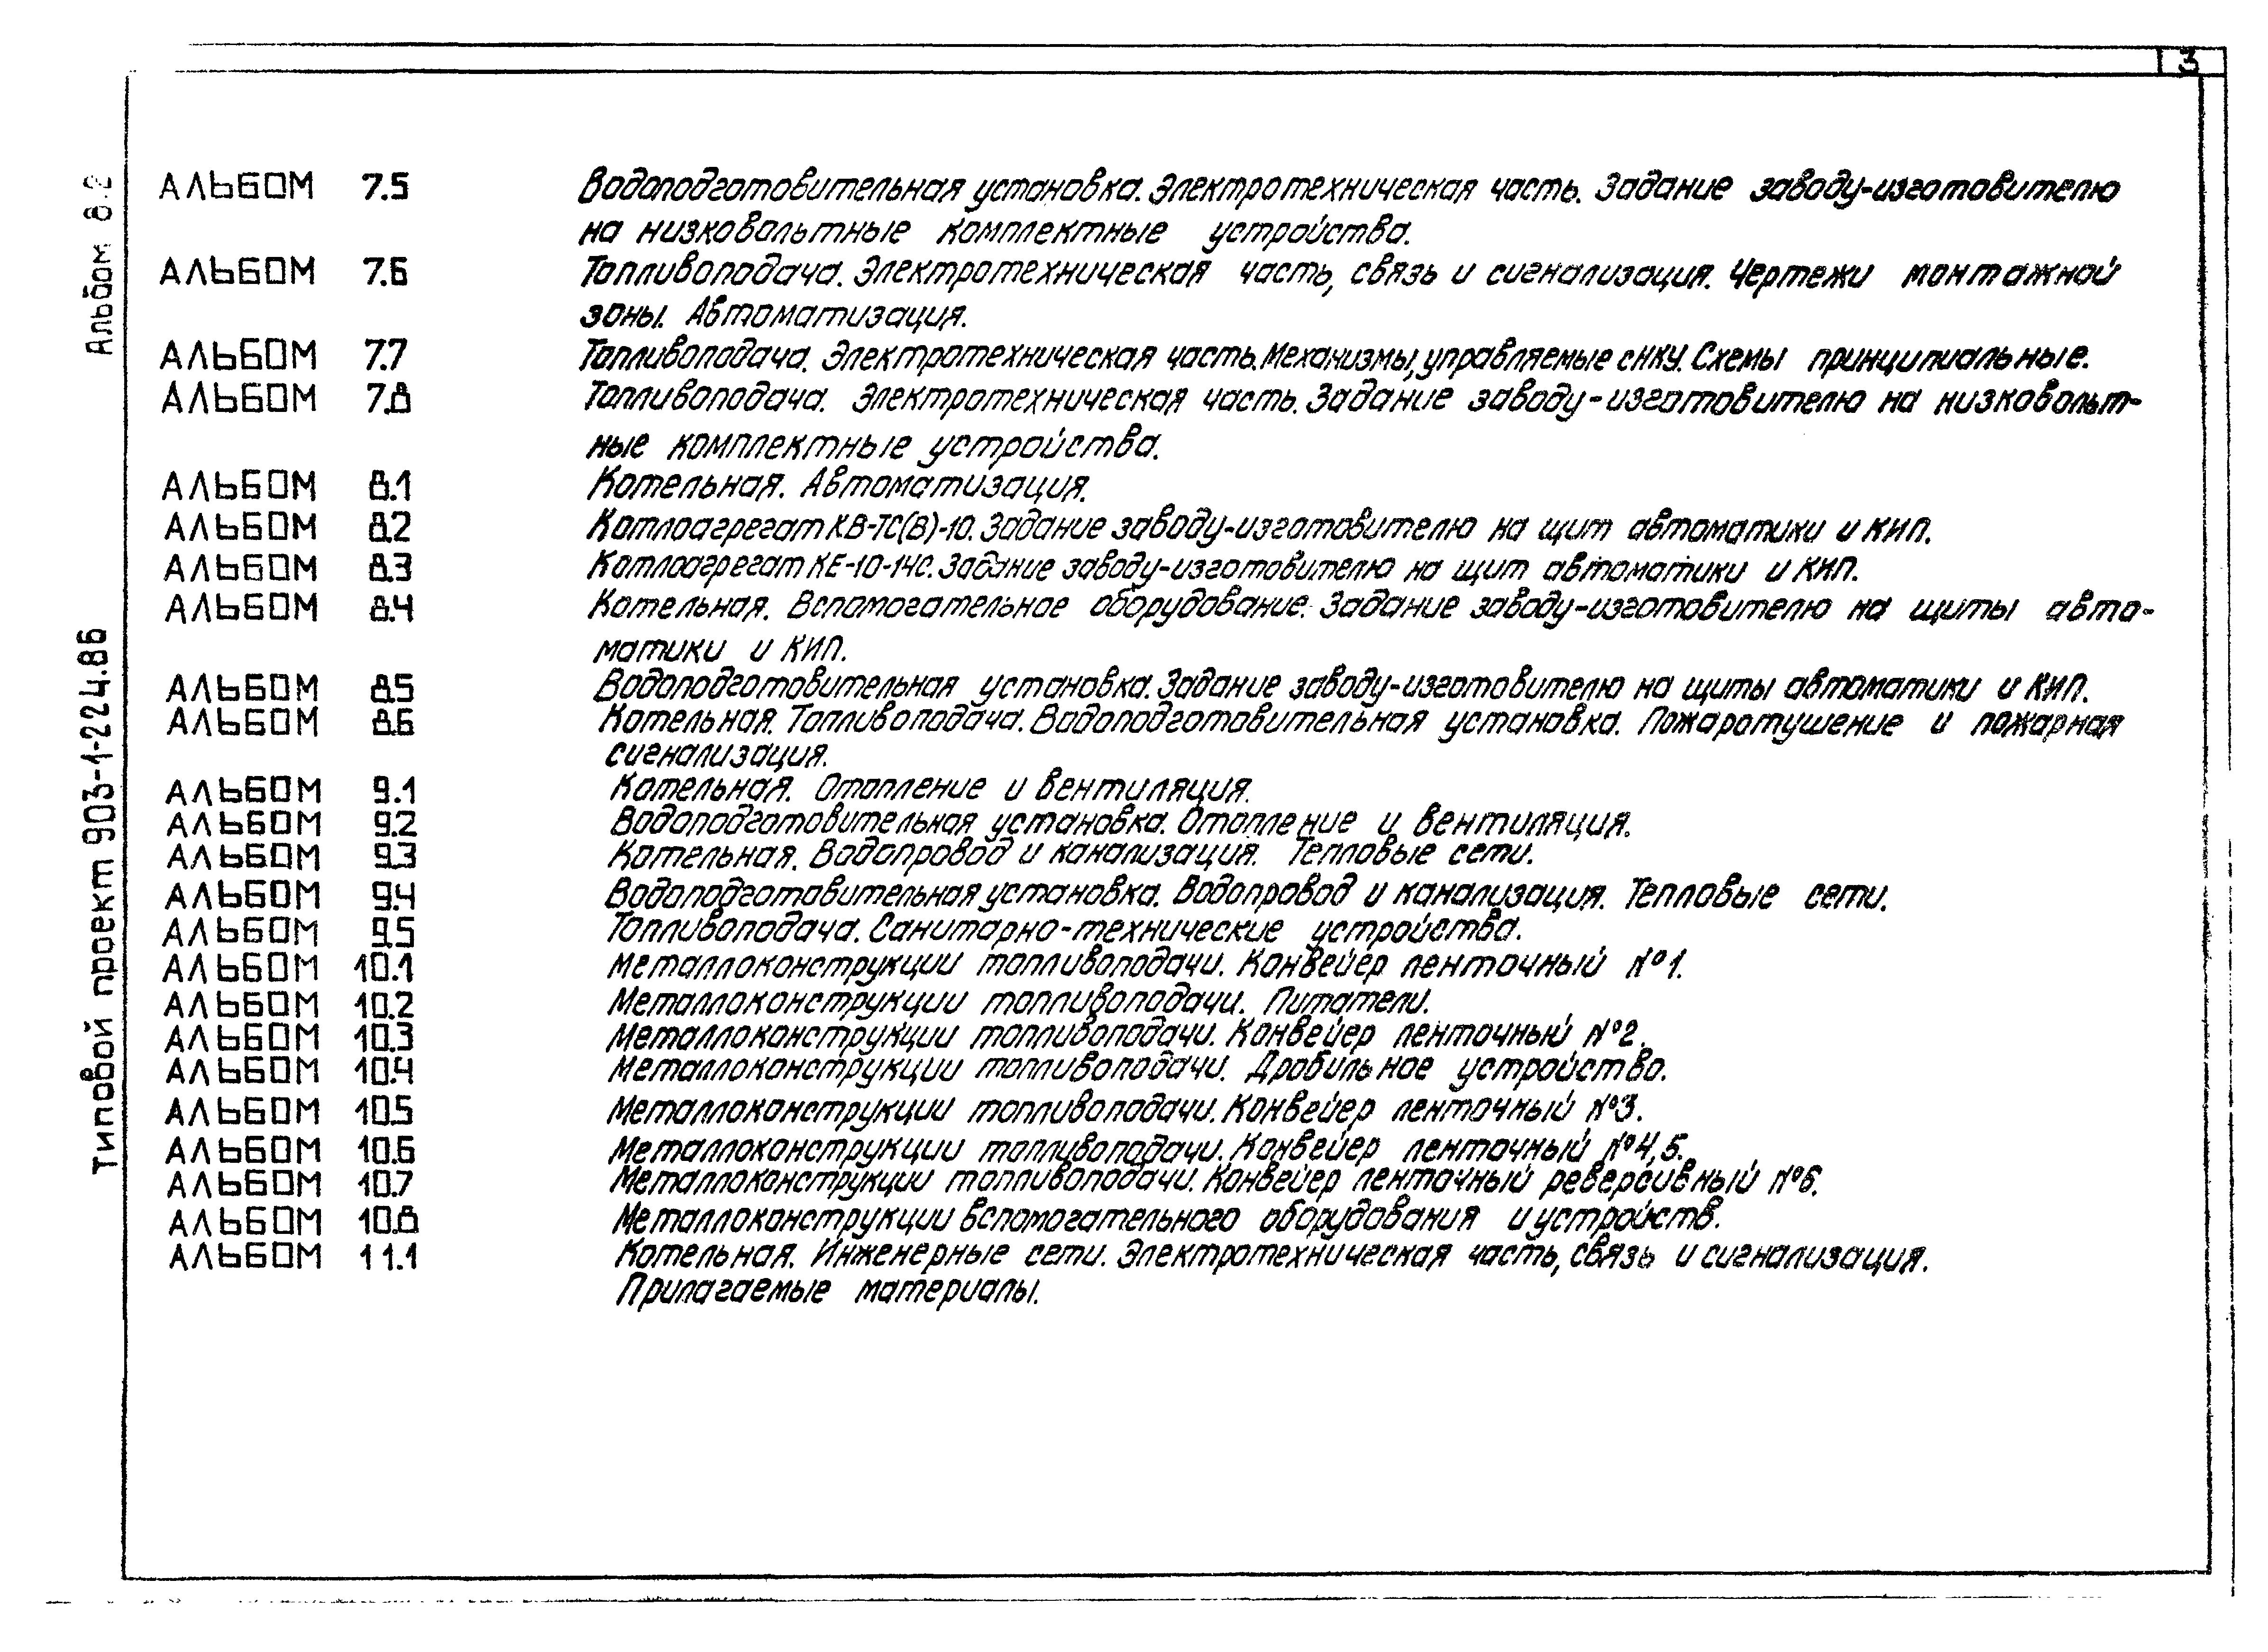 3
Альбом 8.2
Типовой проект 903-1-224.86
АЛЬБОМ 7.5 Водоподготовительная установка. Электротехническая часть. Задание заводу-изготовителю
на низковольтные комплектные устройства.
АЛЬБОМ 7.6 Топливоподача. Электротехническая часть, связь и сигнализация. Чертежи монтажной
зоны. Автоматизация.
АЛЬБОМ 7.7 Топливоподача. Электротехническая часть. Механизмы, управляемые с НКУ. Схемы принципиальные.
АЛЬБОМ 7.8 Топливоподача. Электротехническая часть. Задание заводу-изготовителю на низковольт-
ные комплектные устройства.
АЛЬБОМ 8.1 Котельная. Автоматизация.
АЛЬБОМ 8.2 Котлоагрегат КВ-ТС(В)-10. Задание заводу-изготовителю на щит автоматики и КИП.
АЛЬБОМ 8.3 Котлоагрегат КЕ-10-14С. Задание заводу-изготовителю на щит автоматики и КИП.
АЛЬБОМ 8.4 Котельная. Вспомогательное оборудование. Задание заводу-изготовителю на щиты авто-
матики и КИП.
АЛЬБОМ 8.5 Водоподготовительная установка. Задание заводу-изготовителю на щиты автоматики и КИП.
АЛЬБОМ 8.6 Котельная. Топливоподача. Водоподготовительная установка. Пожаротушение и пожарная
сигнализация.
АЛЬБОМ 9.1 Котельная. Отопление и вентиляция.
АЛЬБОМ 9.2 Водоподготовительная установка. Отопление и вентиляция.
АЛЬБОМ 9.3 Котельная. Водопровод и канализация. Тепловые сети.
АЛЬБОМ 9.4 Водоподготовительная установка. Водопровод и канализация. Тепловые сети.
АЛЬБОМ 9.5 Топливоподача. Санитарно-технические устройства.
АЛЬБОМ 10.1 Металлоконструкции топливоподачи. Конвейер ленточный №1.
АЛЬБОМ 10.2 Металлоконструкции топливоподачи. Питатели.
АЛЬБОМ 10.3 Металлоконструкции топливоподачи. Конвейер ленточный №2.
АЛЬБОМ 10.4 Металлоконструкции топливоподачи. Дробильное устройство.
АЛЬБОМ 10.5 Металлоконструкции топливоподачи. Конвейер ленточный №3.
АЛЬБОМ 10.6 Металлоконструкции топливоподачи. Конвейер ленточный №4,5.
АЛЬБОМ 10.7 Металлоконструкции топливоподачи. Конвейер ленточный реверсивный №6.
АЛЬБОМ 10.8 Металлоконструкции вспомогательного оборудования и устройств.
АЛЬБОМ 11.1 Котельная. Инженерные сети. Электротехническая часть, связь и сигнализация.
Прилагаемые материалы.